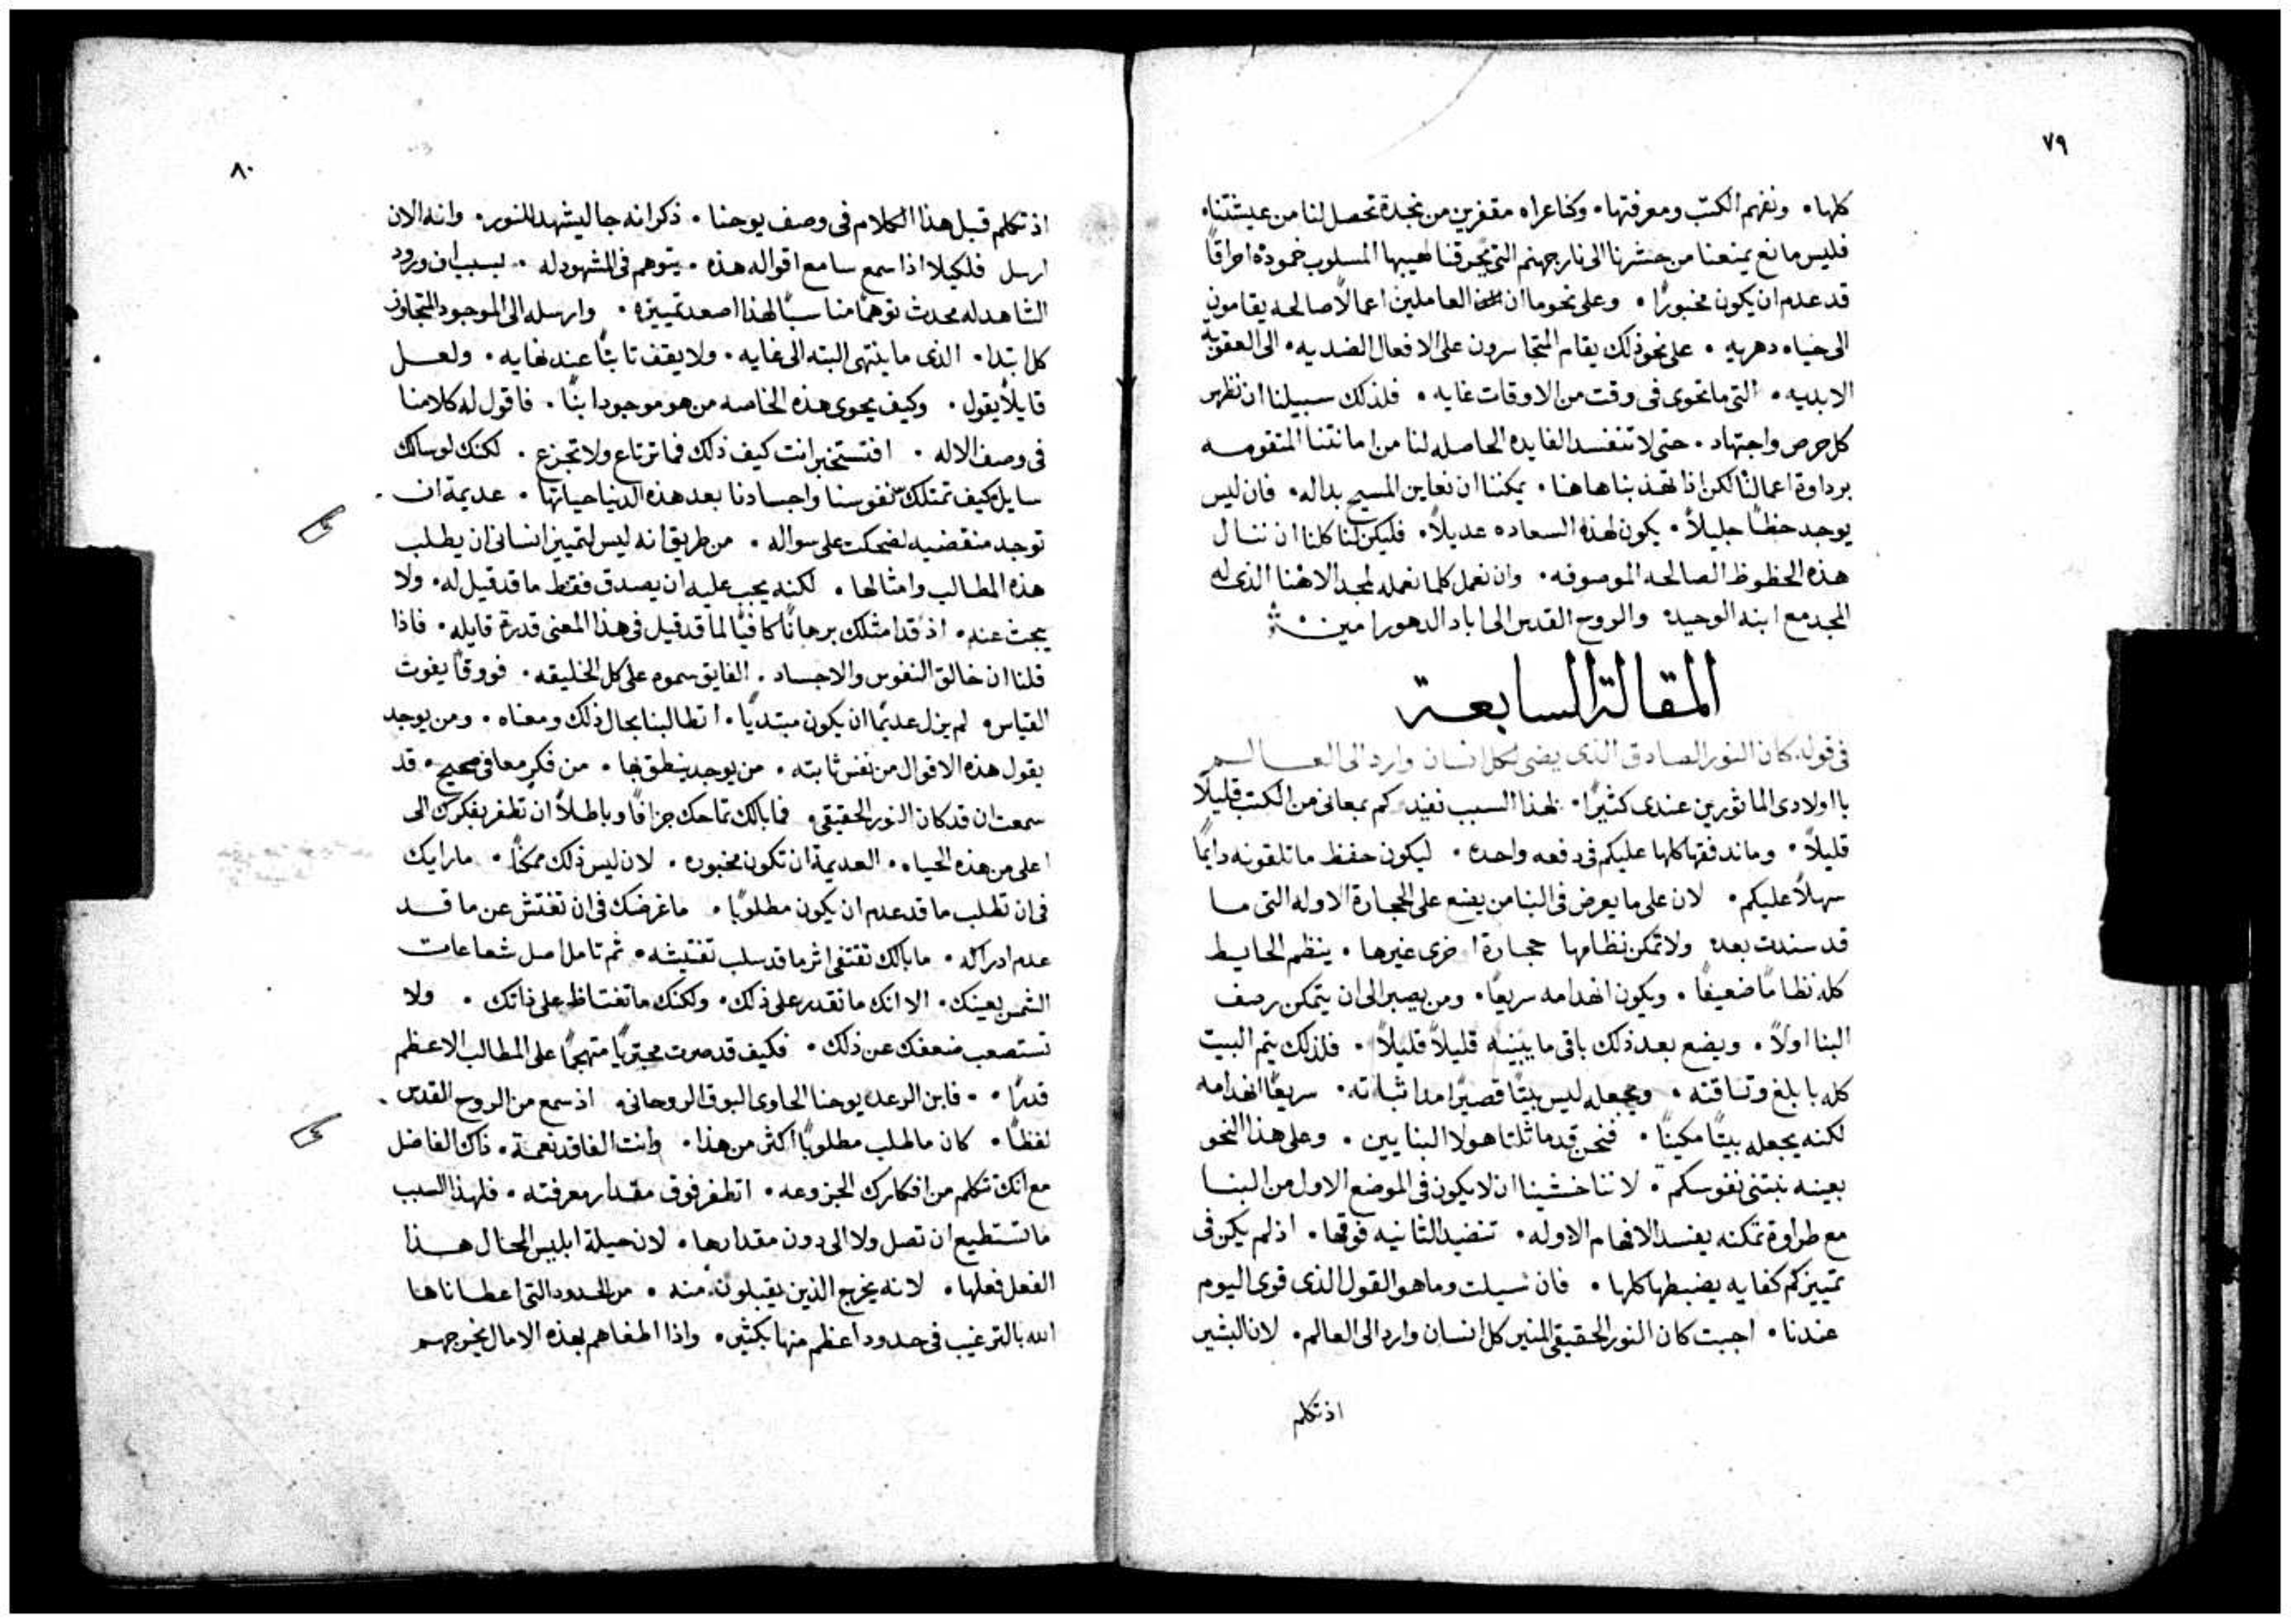 ٧٩
كلها ٠ ونفهم الكتب ومعرفتها ٠ وكنا عراه مقفرين من نجدة تحصل لنا من عيشتنا ٠
فليس مانع يمنعنا من حشرنا الى نار جهنم التى يحرقنا لهيبها المسلوب خمودة احراقًا
قد عدم ان يكون مخبورًا ٠ وعلى نحو ما ان العاملين اعمالًا صالحه يقامون
الى حياه دهريه ٠ على نحو ذلك يقام المتجاسرون على الافعال الضديه ٠ الى العقوبة
الابديه ٠ التى ما تحوى فى وقت من الاوقات غايه ٠ فلذلك سبيلنا ان نظهر
كل حرص واجتهاد ٠ حتى لا تنفسد الفايده الحاصله لنا من امانتنا المتقومه
برداوة اعمالنا لكن اذا تهذبنا هاهنا ٠ يمكننا ان نعاين المسيح بداله ٠ فان ليس
يوجد حظًا جليلًا ٠ يكون لهذه السعاده عديلًا ٠ فليكن لنا كلنا ان ننال
هذه الحظوظ الصالحه الموصوفه ٠ وان نعمل كلما نعمله لمجد الاهنا الذى له
المجد مع ابنه الوحيد والروح القدس الى اباد الدهور امين
المقالة السابعة
فى قوله كان النور الصادق الذى يضى لكل انسان وارد الى العالم
يا اولادى الماثورين عندى كثيرًا ٠ لهذا السبب نفيدكم بمعانى من الكتب قليلًا
قليلًا ٠ وما ندفقها كلها عليكم فى دفعه واحده ٠ ليكون حفظ ما تلقونه دايمًا
سهلًا عليكم ٠ لان على ما يعرض فى البنا من يضع على الحجارة الاوله التى ما
قد سندت بعد ولا تمكن نظامها حجارة اخرى غيرها ٠ ينظم الحايط
كله نظامًا ضعيفًا ٠ ويكون انهدامه سريعًا ٠ ومن يصبر الى ان يتمكن رصف
البنا اولًا ٠ ويضع بعد ذلك باقى ما يبنيه قليلًا قليلًا ٠ فلذلك يتم البيت
كله بابلغ وثاقته ٠ ويجعله ليس بيتًا قصيرًا مدا ثباته ٠ سريعًا انهدامه
لكنه يجعله بيتًا مكينًا ٠ فنحن قد ماثلنا هولا البنايين ٠ وعلى هذا النحو
بعينه نبتنى نفوسكم ٠ لاننا خشينا ان لا يكون فى الموضع الاول من البنا
مع طراوة تمكنه يفسد الافهام الاوله ٠ تنضيد الثانيه فوقها ٠ اذ لم يكن فى
تمييزكم كفايه يضبطها كلها ٠ فان سيلت وما هو القول الذى قوى اليوم
عندنا ٠ اجبت كان النور الحقيقى المنير كل انسان وارد الى العالم ٠ لان البشير
اذ تكلم
٨٠
اذ تكلم قبل هذا الكلام فى وصف يوحنا ٠ ذكر انه جا ليشهد للنور ٠ وانه الان
ارسل فلكيلا اذا سمع سامع اقواله هذه ٠ يتوهم فى المشهود له ٠ بسبب ان ورود
الشاهد له محدث توهمًا مناسبًا لهذا اصعد تمييزه ٠ وارسله الى الموجود المتجاوز
كل ابتدا ٠ الذى ما ينتهى البته الى غايه ٠ ولا يقف ثابتًا عند نهايه ٠ ولعل
قايلًا يقول ٠ وكيف يحوى هذه الخاصه من هو موجود ابنًا ٠ فاقول له كلامنا
فى وصف الاله ٠ افتستخبر انت كيف ذلك فما ترتاع ولا تجزع ٠ لكنك لو سالك
سايل كيف تمتلك نفوسنا واجسادنا بعد هذه الدنيا حياتها ٠ عديمة ان
توجد منقضيه لضحكت على سواله ٠ من طريق انه ليس لتمييز انسانى ان يطلب
هذه المطالب وامثالها ٠ لكنه يجب عليه ان يصدق فقط ما قد قيل له ٠ ولا
يبحث عنه ٠ اذ قد امتلك برهانًا كافيًا لما قد قيل فى هذا المعنى قدرة قايله ٠ فاذا
قلنا ان خالق النفوس والاجساد ٠ الفايق سموه على كل الخليقه ٠ فووقًا يفوت
القياس ٠ لم يزل عديمًا ان يكون مبتديًا ٠ اتطالبنا بحال ذلك ومعناه ٠ ومن يوجد
يقول هذه الاقوال من نفس ثابته ٠ من يوجد ينطق بها ٠ من فكر معافى صحيح ٠ قد
سمعت ان قد كان النور الحقيقى ٠ فما بالك تماحك جزافًا وباطلًا ان تطفر بفكرك الى
اعلى من هذه الحياه ٠ العديمة ان تكون مخبوره ٠ لان ليس ذلك ممكنًا ٠ ما رايك
فى ان تطلب ما قد عدم ان يكون مطلوبًا ٠ ما غرضك فى ان تفتش عن ما قد
عدم ادراكه ٠ ما بالك تقتفى اثر ما قد سلب تفتيشه ٠ ثم تامل اصل شعاعات
الشمس بعينك ٠ الا انك ما تقدر على ذلك ٠ ولكنك ما تغتاظ على ذاتك ٠ ولا
تستصعب ضعفك عن ذلك ٠ فكيف قد صرت مجتريًا متهجمًا على المطالب الاعظم
قدرًا ٠ ٠ فابن الرعد يوحنا الحاوى البوق الروحانى ٠ اذ سمع من الروح القدس
لفظًا ٠ كان ما طلب مطلوبًا اكثر من هذا ٠ وانت الفاقد نعمة ٠ ذاك الفاضل
مع انك تتكلم من افكارك الجزوعه ٠ اتطفر فوق مقدار معرفته ٠ فلهذا السبب
ما تستطيع ان تصل ولا الى دون مقدارها ٠ لان حيلة ابليس المحتال هذا
الفعل فعلها ٠ لانه يخرج الذين يقبلون منه ٠ من الحدود التى اعطاناها
الله بالترغيب فى حدود اعظم منها بكثير ٠ واذا اطغاهم بهذه الامال يخرجهم